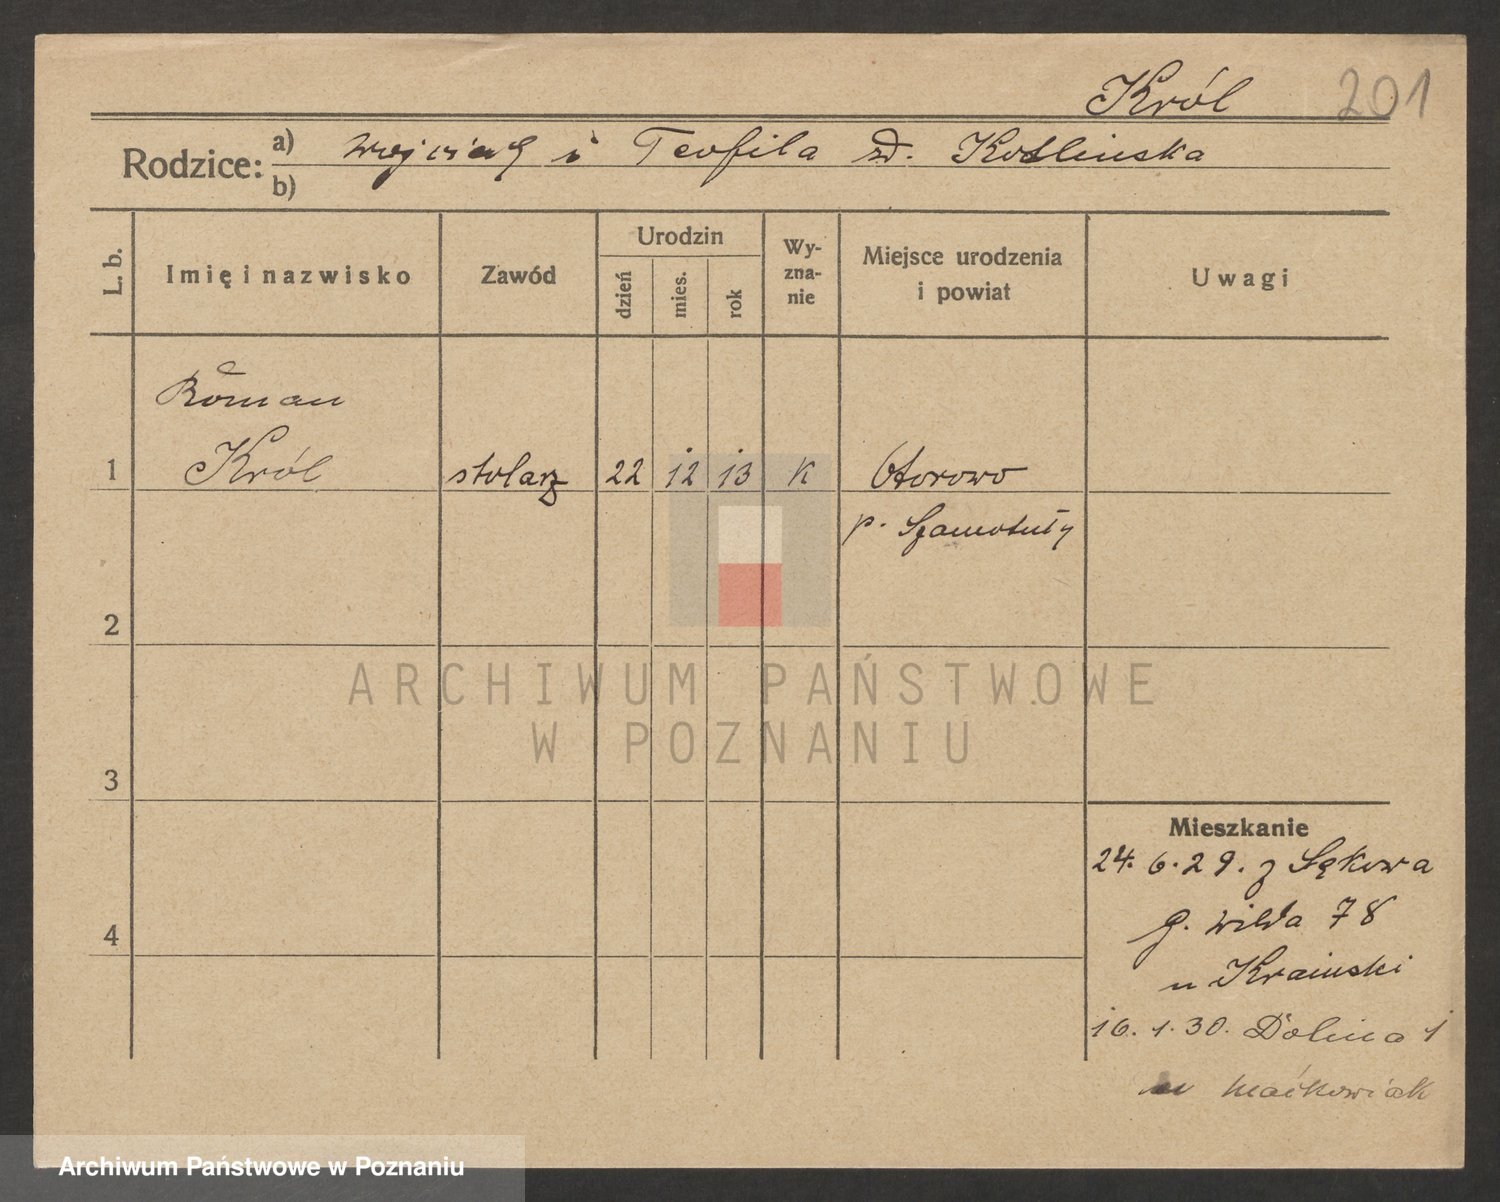 Król 201
Rodzice: a) Wojciech i Teofila zd. Koślinska
b)
L. b. Imię i nazwisko Zawód Urodzin dzień mies. rok Wy-zna-nie Miejsce urodzenia i powiat Uwagi
Roman
1 Król stolarz 22 12 13 K Otorowo
p. Szamotuły
2
ARCHIWUM PAŃSTWOWE
W POZNANIU
3
Mieszkanie
24. 6. 29. z Sękowa
4 g. Wilda 78
u Krainski
16. 1. 30. Dolina 1
u Maćkowiak
Archiwum Państwowe w Poznaniu